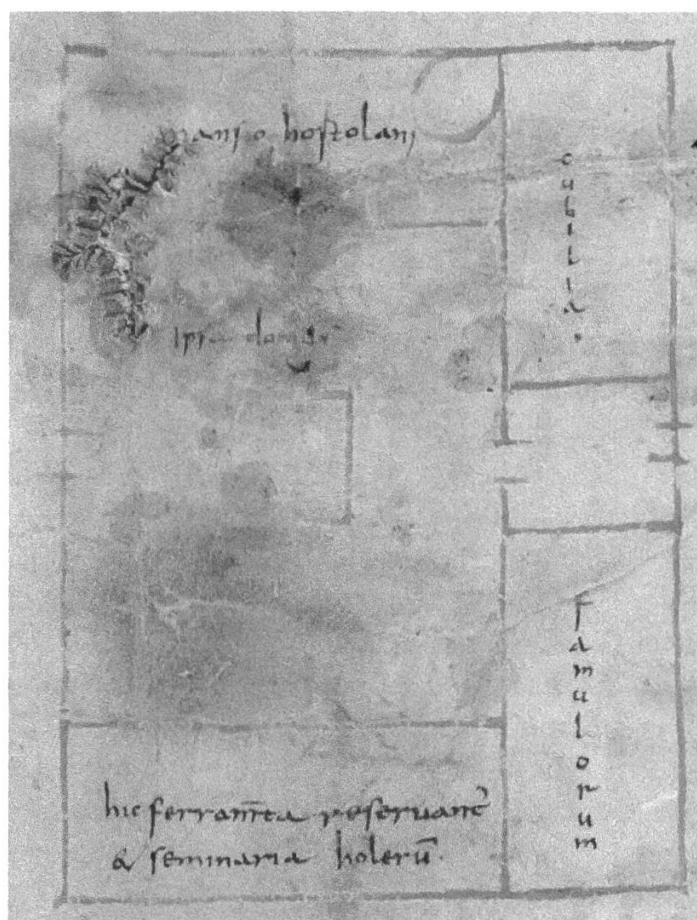 mansio hortolani
cubilia.
ipsa domus
famulorum
hic ferram̄ta reseruant᷑
& seminaria holerū.